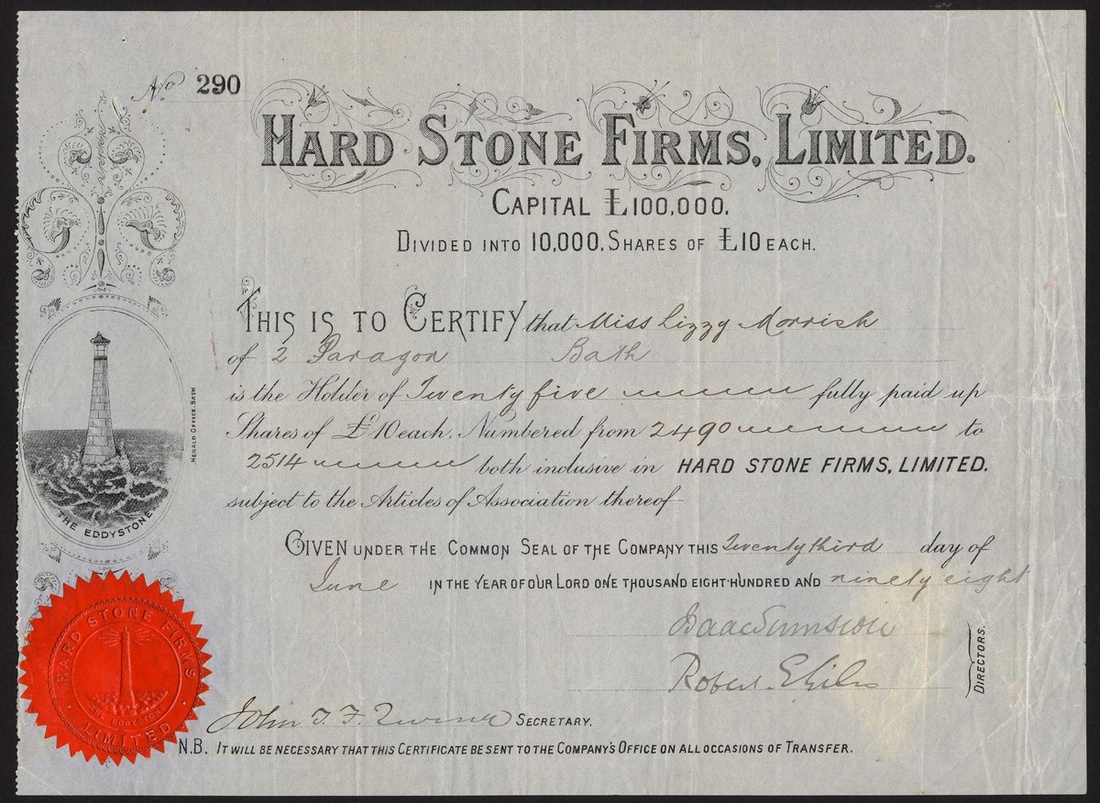 No 290
HARD STONE FIRMS, LIMITED.
CAPITAL £100,000.
DIVIDED INTO 10,000, SHARES OF £10 EACH.
THIS IS TO CERTIFY that Miss Lizzy Morrish
of 2 Paragon Bath
is the Holder of Twenty five fully paid up
Shares of £10 each, Numbered from 2490 to
2514 both inclusive in HARD STONE FIRMS, LIMITED.
subject to the Articles of Association thereof
GIVEN UNDER THE COMMON SEAL OF THE COMPANY THIS Twenty third day of
June IN THE YEAR OF OUR LORD ONE THOUSAND EIGHT HUNDRED AND ninety eight
Isaac
Robert
DIRECTORS.
John T. F. Turner SECRETARY.
N.B. IT WILL BE NECESSARY THAT THIS CERTIFICATE BE SENT TO THE COMPANY'S OFFICE ON ALL OCCASIONS OF TRANSFER.
THE EDDYSTONE
HERALD OFFICE, BATH
HARD STONE FIRMS
THE EDDYSTONE
LIMITED